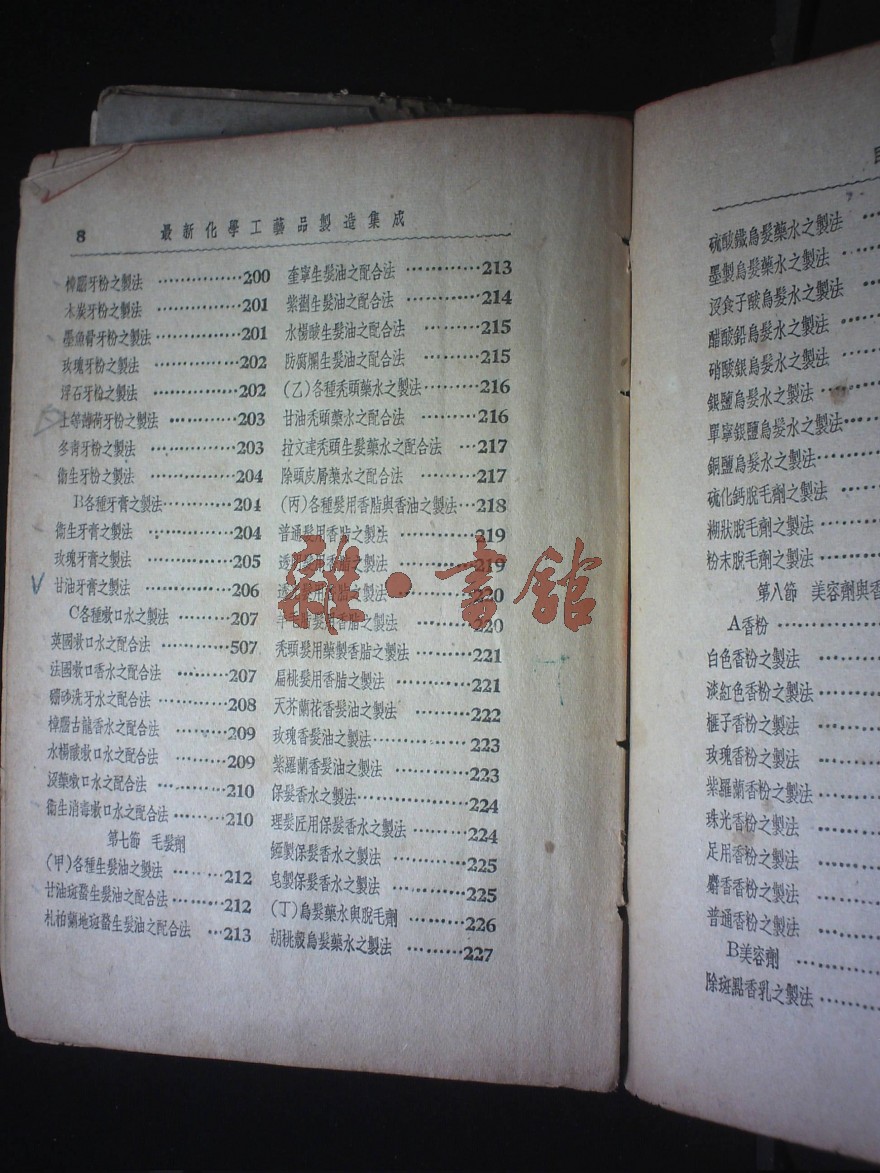 8 最新化學工藝品製造集成
樟腦牙粉之製法 ……………200
木炭牙粉之製法 ……………201
墨魚骨牙粉之製法……………201
玫瑰牙粉之製法 ……………202
浮石牙粉之製法 ……………202
上等薄荷牙粉之製法 …………203
冬青牙粉之製法 ……………203
衞生牙粉之製法 ……………204
B各種牙膏之製法……………204
衞生牙膏之製法 ……………204
玫瑰牙膏之製法 ……………205
甘油牙膏之製法 ……………206
C各種漱口水之製法 …………207
英國漱口水之配合法 …………507
法國漱口香水之配合法 ………207
硼砂洗牙水之配合法 …………208
樟腦古龍香水之配合法 ………209
水楊酸漱口水之配合法 ………209
沒藥漱口水之配合法 …………210
衞生消毒漱口水之配合法………210
第七節 毛髮劑
(甲)各種生髮油之製法 ………212
甘油斑蝥生髮油之配合法………212
札柏蘭地斑蝥生髮油之配合法 …213
奎寧生髮油之配合法 …………213
紫樹生髮油之配合法 …………214
水楊酸生髮油之配合法 ………215
防腐爛生髮油之配合法 ………215
(乙)各種禿頭藥水之製法………216
甘油禿頭藥水之配合法 ………216
拉文達禿頭生髮藥水之配合法 …217
除頭皮屑藥水之配合法 ………217
(丙)各種髮用香脂與香油之製法…218
普通髮用香脂之製法 …………219
透明髮用香脂之製法 …………219
髮用香脂之製法 …………220
羊毛脂髮用香脂之製法 ………220
禿頭髮用藥製香脂之製法 ……221
扁桃髮用香脂之製法 …………221
天芥蘭花香髮油之製法 ………222
玫瑰香髮油之製法……………223
紫羅蘭香髮油之製法 …………223
保髮香水之製法………………224
理髮匠用保髮香水之製法 ……224
保髮香水之製法 …………225
皂製保髮香水之製法 …………225
(丁)烏髮藥水與脫毛劑 ………226
胡桃殼烏髮藥水之製法 ………227
雜·書舘
硫酸鐵烏髮藥水之製法 …
墨製烏髮藥水之製法 ……
沒食子酸烏髮水之製法 …
醋酸鉛烏髮水之製法 ……
硝酸銀烏髮水之製法 ……
銀鹽烏髮水之製法………
單寧銀鹽烏髮水之製法……
銅鹽烏髮水之製法………
硫化鈣脫毛劑之製法 ……
糊狀脫毛劑之製法 ………
粉末脫毛劑之製法 ………
第八節 美容劑與香
A香粉 ………………
白色香粉之製法 …………
淡紅色香粉之製法 ………
榧子香粉之製法 …………
玫瑰香粉之製法 …………
紫羅蘭香粉之製法 ………
珠光香粉之製法 …………
足用香粉之製法 …………
麝香香粉之製法 …………
普通香粉之製法 …………
B美容劑 ……………
除斑點香乳之製法 ………